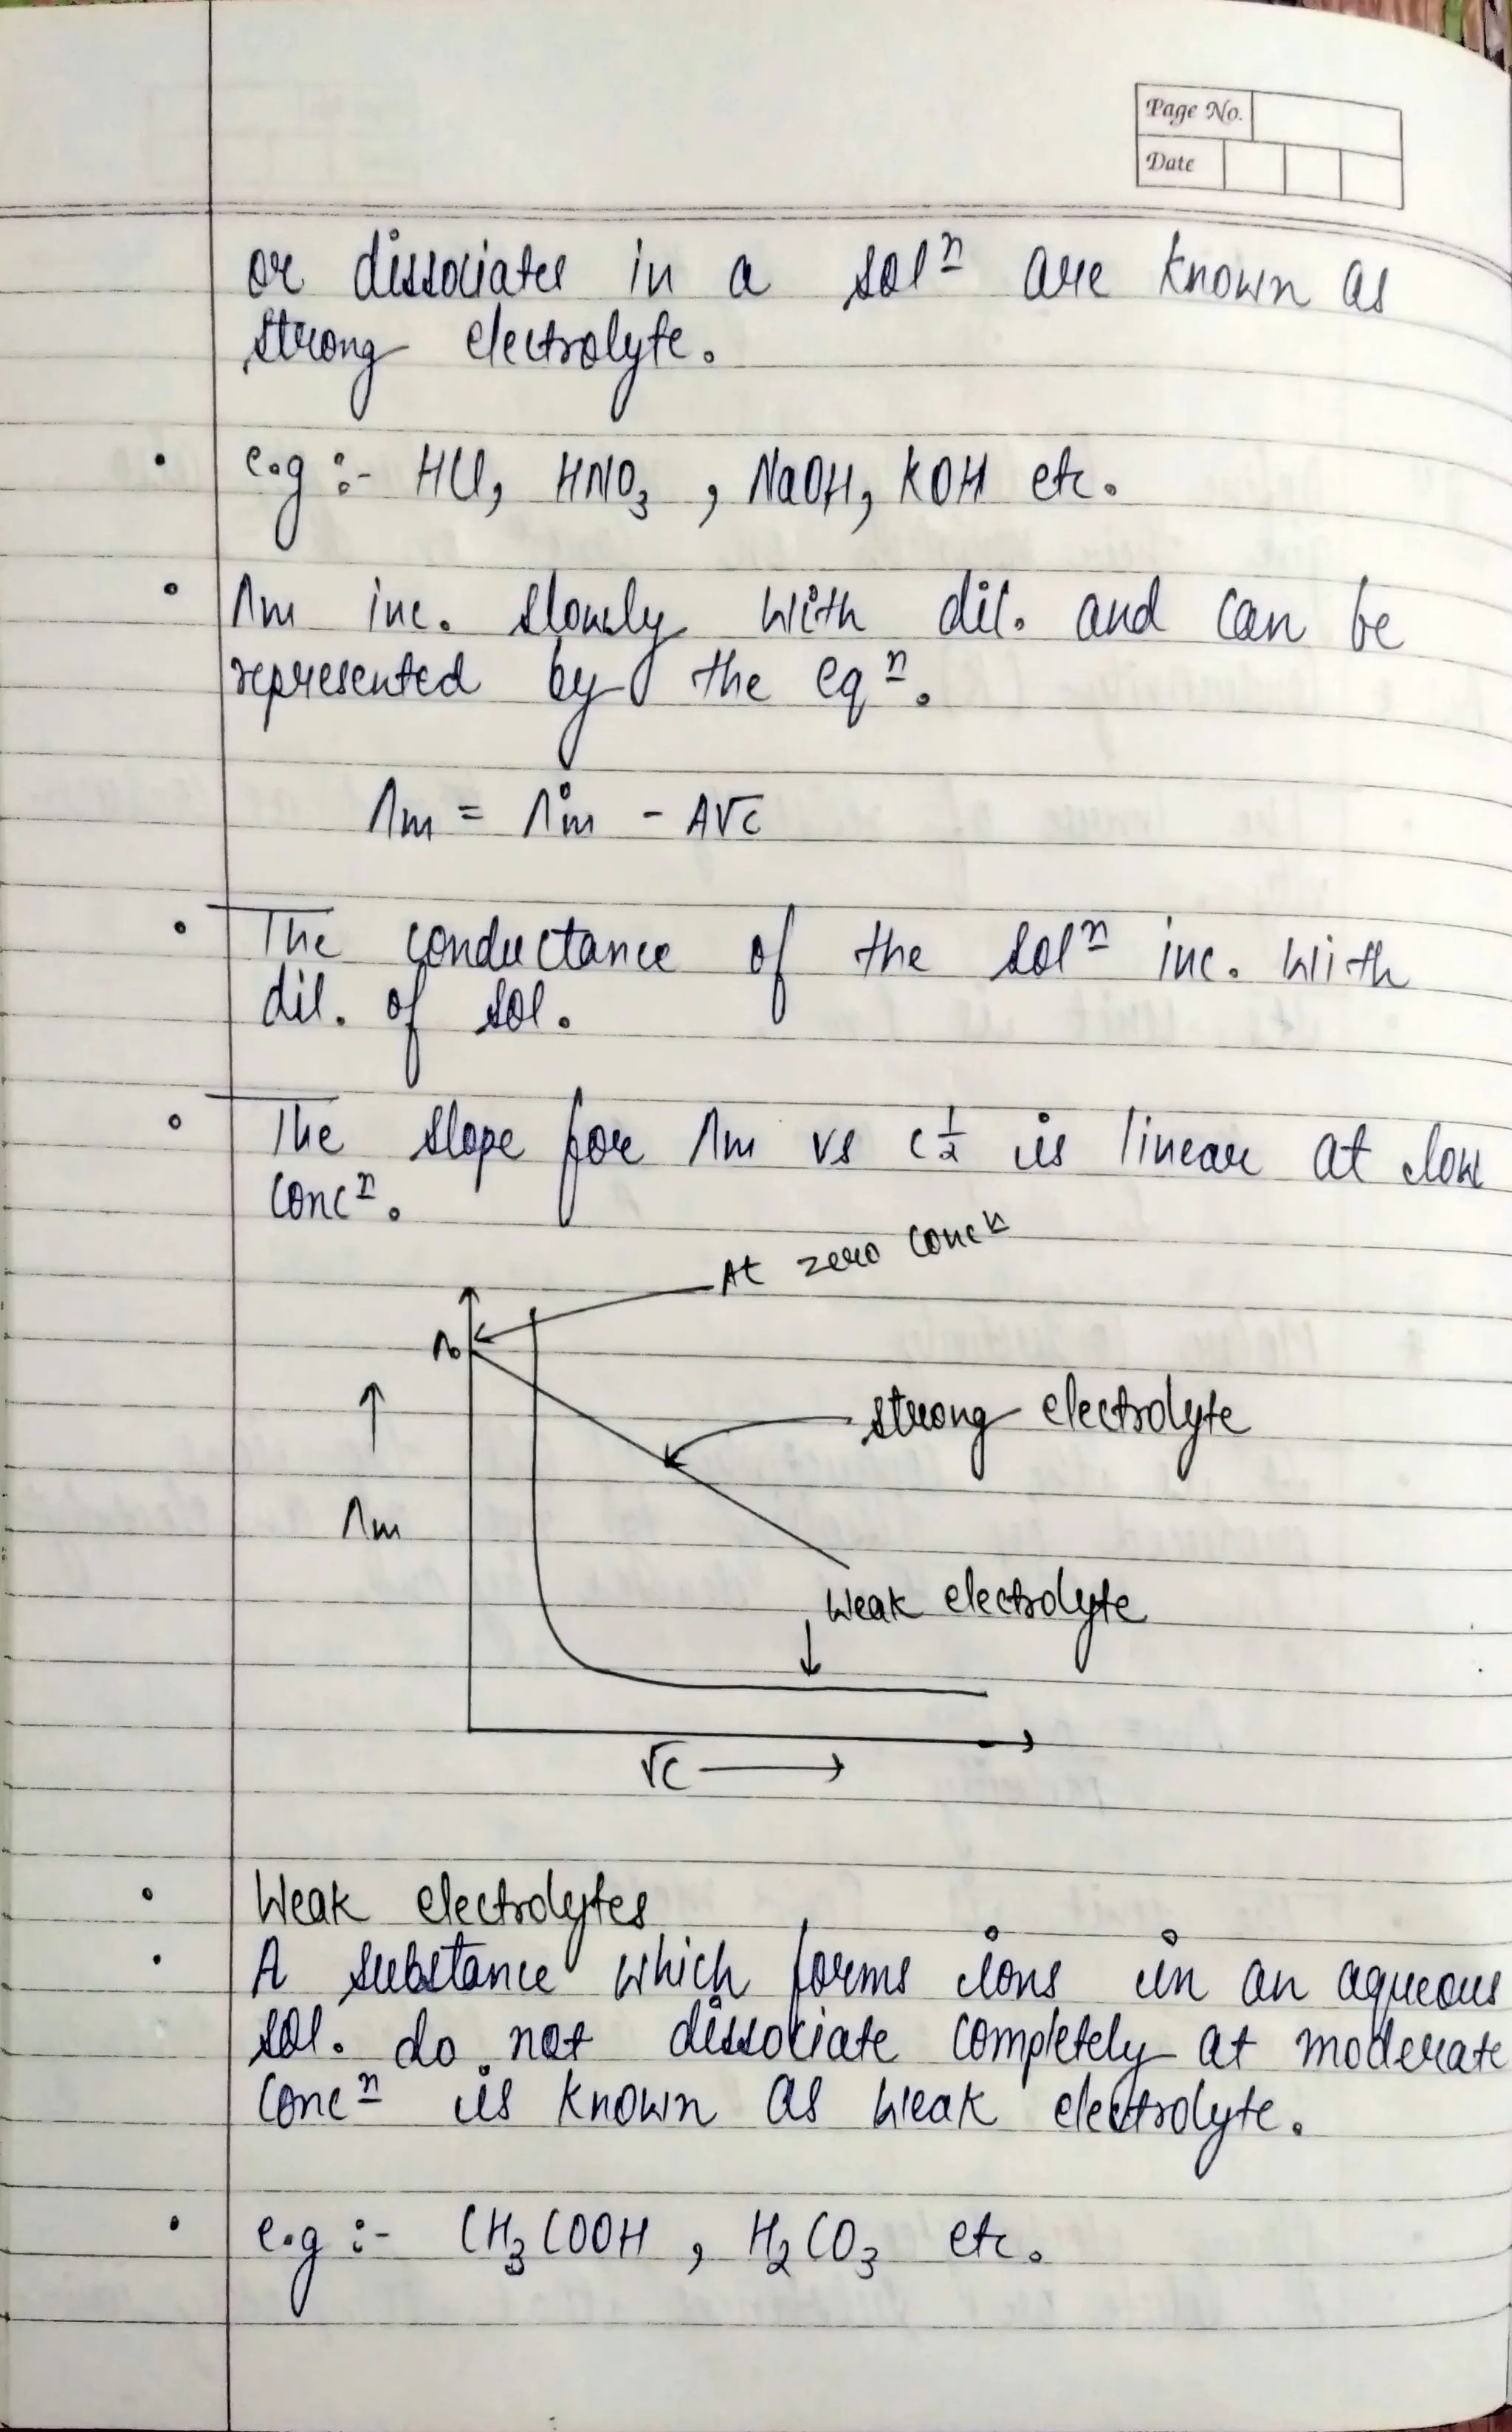 Page No.
Date
or dissociates in a solⁿ are known as
strong electrolyte.
e.g :- HCl, HNO₃ , NaOH, KOH etc.
Λm inc. slowly with dil. and can be
represented by the eqⁿ.
Λm = Λ°m - A√c
The conductance of the solⁿ inc. with
dil. of sol.
The slope for Λm vs c½ is linear at low
concⁿ.
At zero concⁿ
Λ₀
strong electrolyte
Λm
Weak electrolyte
√c
Weak electrolytes
A substance which forms ions in an aqueous
sol. do not dissociate completely at moderate
concⁿ is known as weak electrolyte.
e.g :- CH₃COOH , H₂CO₃ etc.